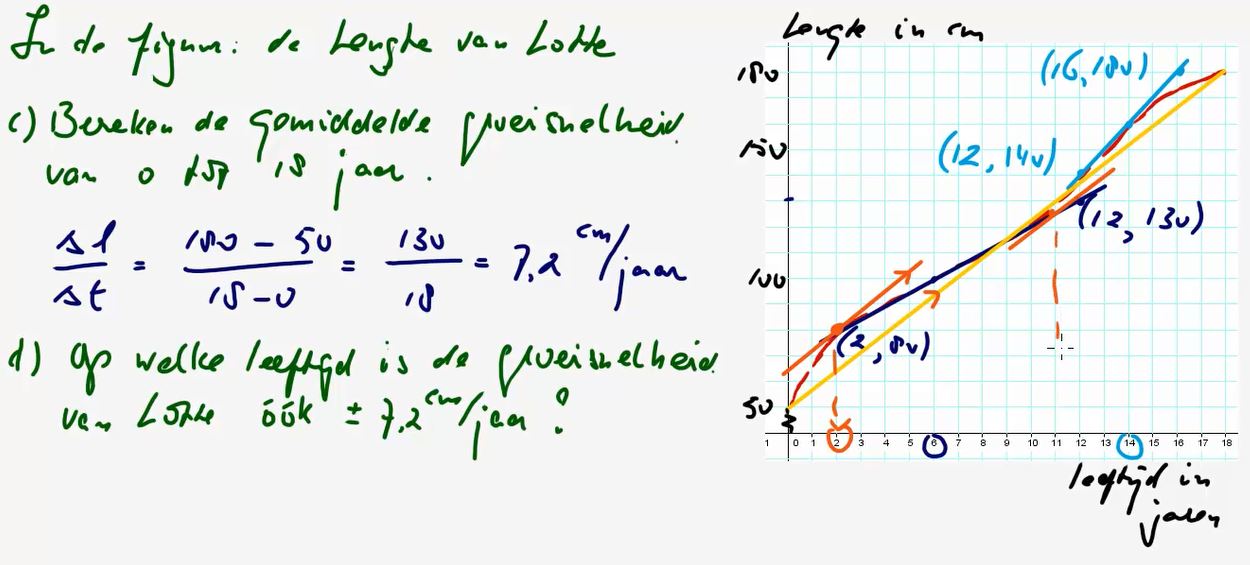 In de figuur: de lengte van Lotte
c) Bereken de gemiddelde groeisnelheid
van 0 tot 18 jaar.
Δl / Δt = 180 - 50 / 18 - 0 = 130 / 18 = 7,2 cm/jaar
d) Op welke leeftijd is de groeisnelheid
van Lotte óók ± 7,2 cm/jaar?
Lengte in cm
180
(16, 180)
150
(12, 140)
(12, 130)
100
(2, 80)
50
1 0 1 2 3 4 5 6 7 8 9 10 11 12 13 14 15 16 17 18
leeftijd in
jaren